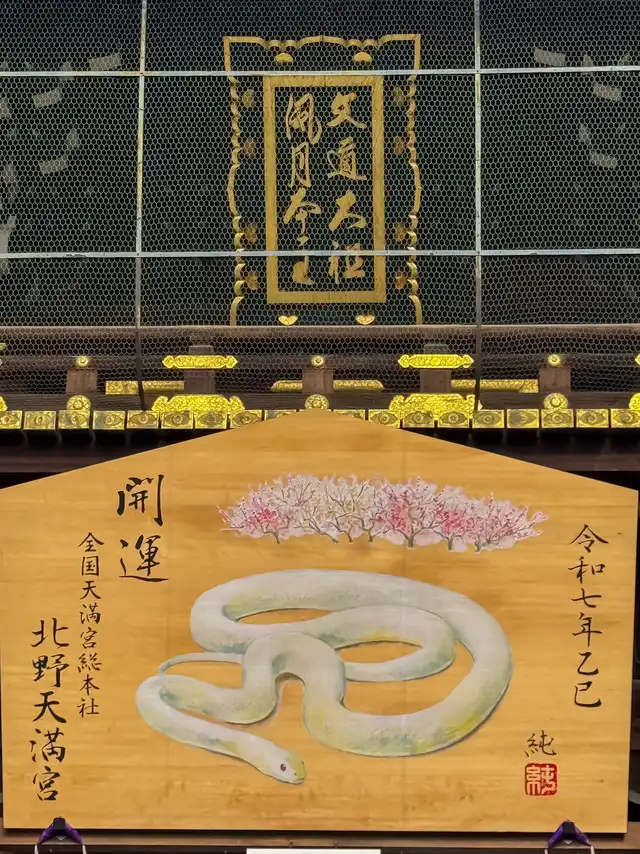 文道大祖
風月本主
令和七年乙巳
純
純
開運
全国天満宮総本社
北野天満宮